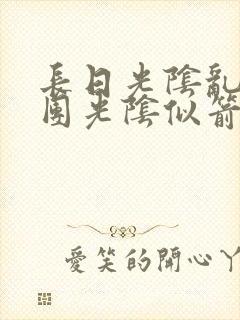 長日光陰亂
團光陰似箭
愛笑的開心丫